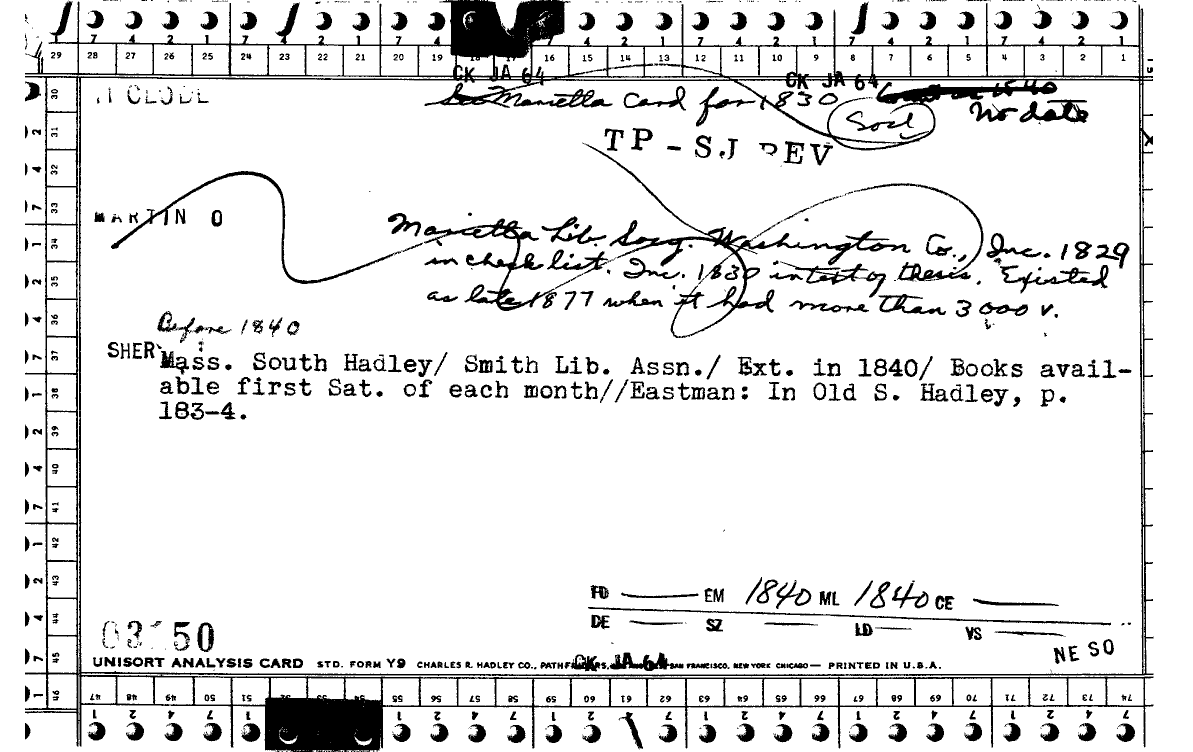 7 4 2 1 7 4 2 1 7 4 2 1 7 4 2 1 7 4 2 1 7 4 2 1
29 28 27 26 25 24 23 22 21 20 19 18 17 16 15 14 13 12 11 10 9 8 7 6 5 4 3 2 1
CK JA 64 CK JA 64
See Marietta Card for 1830
No date
Socl
TP - SJ REV
MARTIN O
Marietta Lib. Socy. Washington Co., Inc. 1829
in check list. Inc. 1830 in text of thesis. Existed
as late 1877 when it had more than 3000 v.
Before 1840
SHER
Mass. South Hadley/ Smith Lib. Assn./ Ext. in 1840/ Books avail-
able first Sat. of each month//Eastman: In Old S. Hadley, p.
183-4.
FD EM 1840 ML 1840 CE
DE SZ LD VS
NE SO
UNISORT ANALYSIS CARD STD. FORM Y9 CHARLES R. HADLEY CO., SAN FRANCISCO, NEW YORK CHICAGO — PRINTED IN U.S.A.
CK JA 64
30 31 32 33 34 35 36 37 38 39 40 41 42 43 44 45 46
47 48 49 50 51 55 56 57 58 59 60 61 62 63 64 65 66 67 68 69 70 71 72 73 74